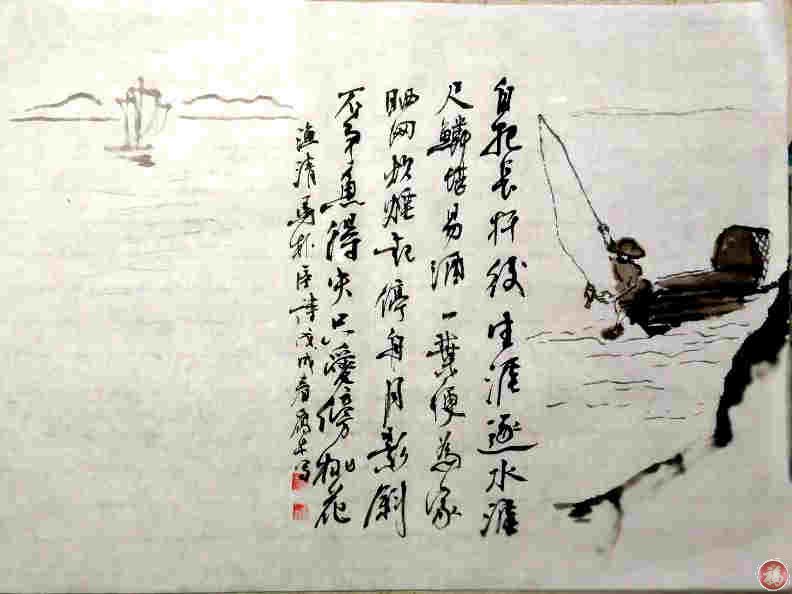 自把长杆后生涯逐水涯
尺鳞堪易酒一叶便为家
晒网炊烟起停舟月影斜
不争鱼得失只爱傍桃花
渔清马朴臣诗戊戌春
福